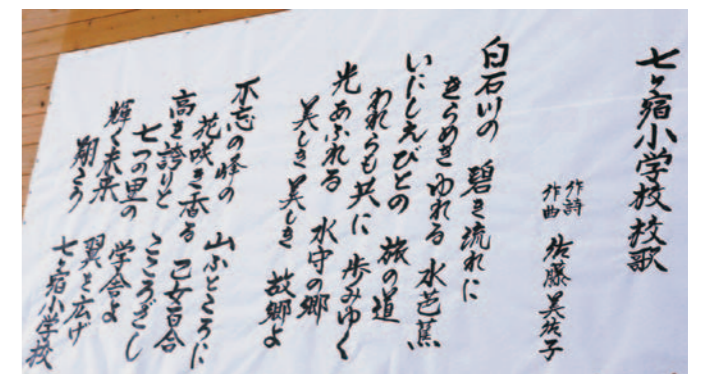 七ヶ宿小学校校歌
作詩
作曲 佐藤美佐子
白石川の 碧き流れに
きらめきゆれる 水芭蕉
いにしえびとの 旅の道
われらも共に 歩みゆく
光あふれる 水守の郷
美しき美しき 故郷よ
不忘の峰の 山ふところに
花咲き香る 乙女百合
高き誇りと こころざし
七つの里の 学舎よ
輝く未来 翼を広げ
翔こう 七ヶ宿小学校